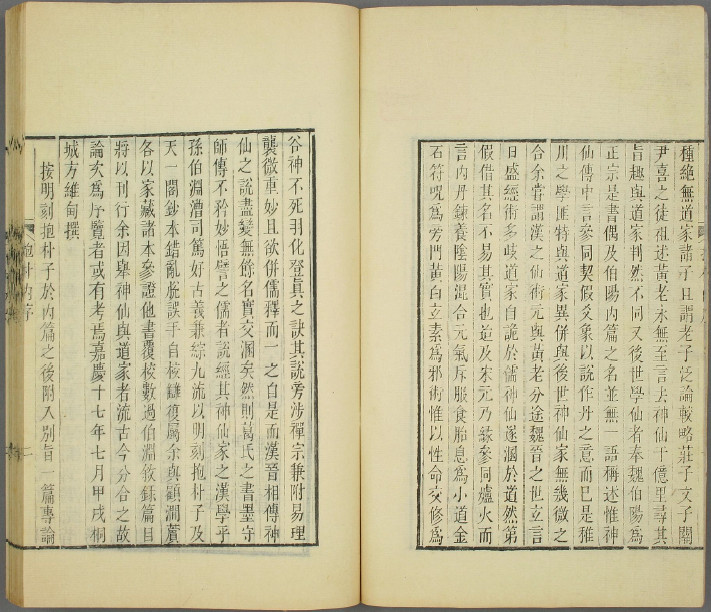 種絶無道家諸子且謂老子泛論較略莊子文子關
尹喜之徒祖述黄老永無至言去神仙千億里尋其
旨趣與道家判然不同又後世學仙者奉魏伯陽爲
正宗是書偶及伯陽内篇之名並無一語稱述惟神
仙傳中言參同契假爻象以說作丹之意而已是稚
川之學匪特與道家異併與後世神仙家無幾微之
合余嘗謂漢之仙術元與黄老分途魏晉之世立言
日盛經術多歧道家自詭於儒神仙遂溷於道然第
假借其名不易其實也迨及宋元乃緣參同爐火而
言内丹鍊養陰陽混合元氣斥服食胎息爲小道金
石符呪爲旁門黄白立素爲邪術惟以性命交修爲
谷神不死羽化登真之訣其說旁涉禪宗兼附易理
襲微重妙且欲併儒釋而一之自是而漢晉相傳神
仙之說盡變無餘名實交溷矣然則葛氏之書墨守
師傳不矜妙悟譬之儒者說經其神仙家之漢學乎
孫伯淵漕司篤好古義兼綜九流以明刻抱朴子及
天一閣鈔本錯亂脱誤手自校讎復屬余與顧澗薲
各以家藏諸本參證他書覆校數過伯淵敘錄篇目
將以刊行余因舉神仙與道家者流古今分合之故
論次爲序覽者或有考焉嘉慶十七年七月甲戌桐
城方維甸撰
按明刻抱朴子於内篇之後附入别旨一篇專論
抱朴内序
二